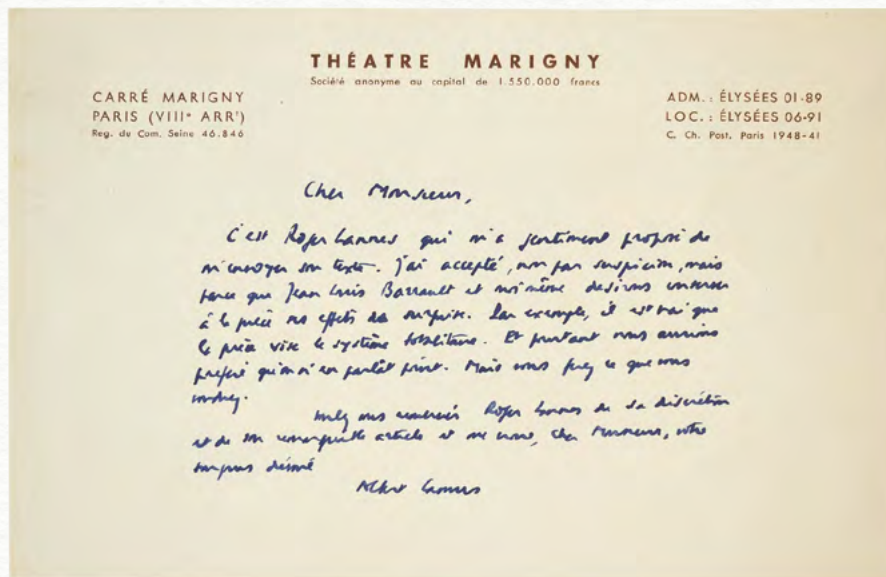 THÉATRE MARIGNY
Société anonyme au capital de 1.550.000 francs
CARRÉ MARIGNY
PARIS (VIIIᵉ ARRᵗ)
Reg. du Com. Seine 46.846
ADM. : ÉLYSÉES 01-89
LOC. : ÉLYSÉES 06-91
C. Ch. Post. Paris 1948-41
Cher Monsieur,
C'est Roger Lannes qui m'a gentiment proposé de
m'envoyer son texte. J'ai accepté, non par suspicion, mais
parce que Jean Louis Barrault et moi-même désirons conserver
à la pièce ses effets de surprise. Par exemple, il est vrai que
la pièce vise le système totalitaire. Et pourtant nous aurions
préféré qu'on n'en parlât point. Mais vous ferez ce que vous
voudrez.
Veuillez remercier Roger Lannes de sa discrétion
et de son remarquable article et me croire, cher Monsieur, votre
toujours dévoué
Albert Camus